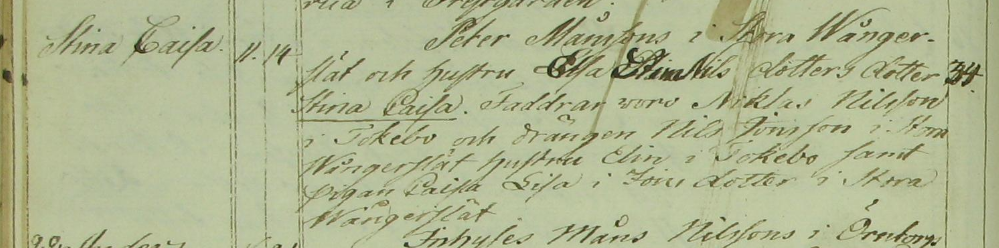 i
Stina Caisa. 11. 14 Peter Månssons i Stora Wånger-
slät och hustru Elsa Nils dotters dotter 34.
Stina Caisa. Faddrar woro Niklas Nilsson
i Tokebo och drängen Nils Jonsson i Stora
Wångerslät hustru Elin i Tokebo samt
Pigan Caisa Lisa i dotter i Stora
Wångerslät
Inhyses Måns Nilssons i